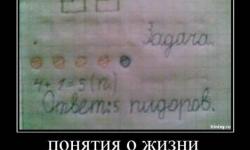 Задача.
4+1=5(п.)
Ответ: 5 пидоров.
понятия о жизни